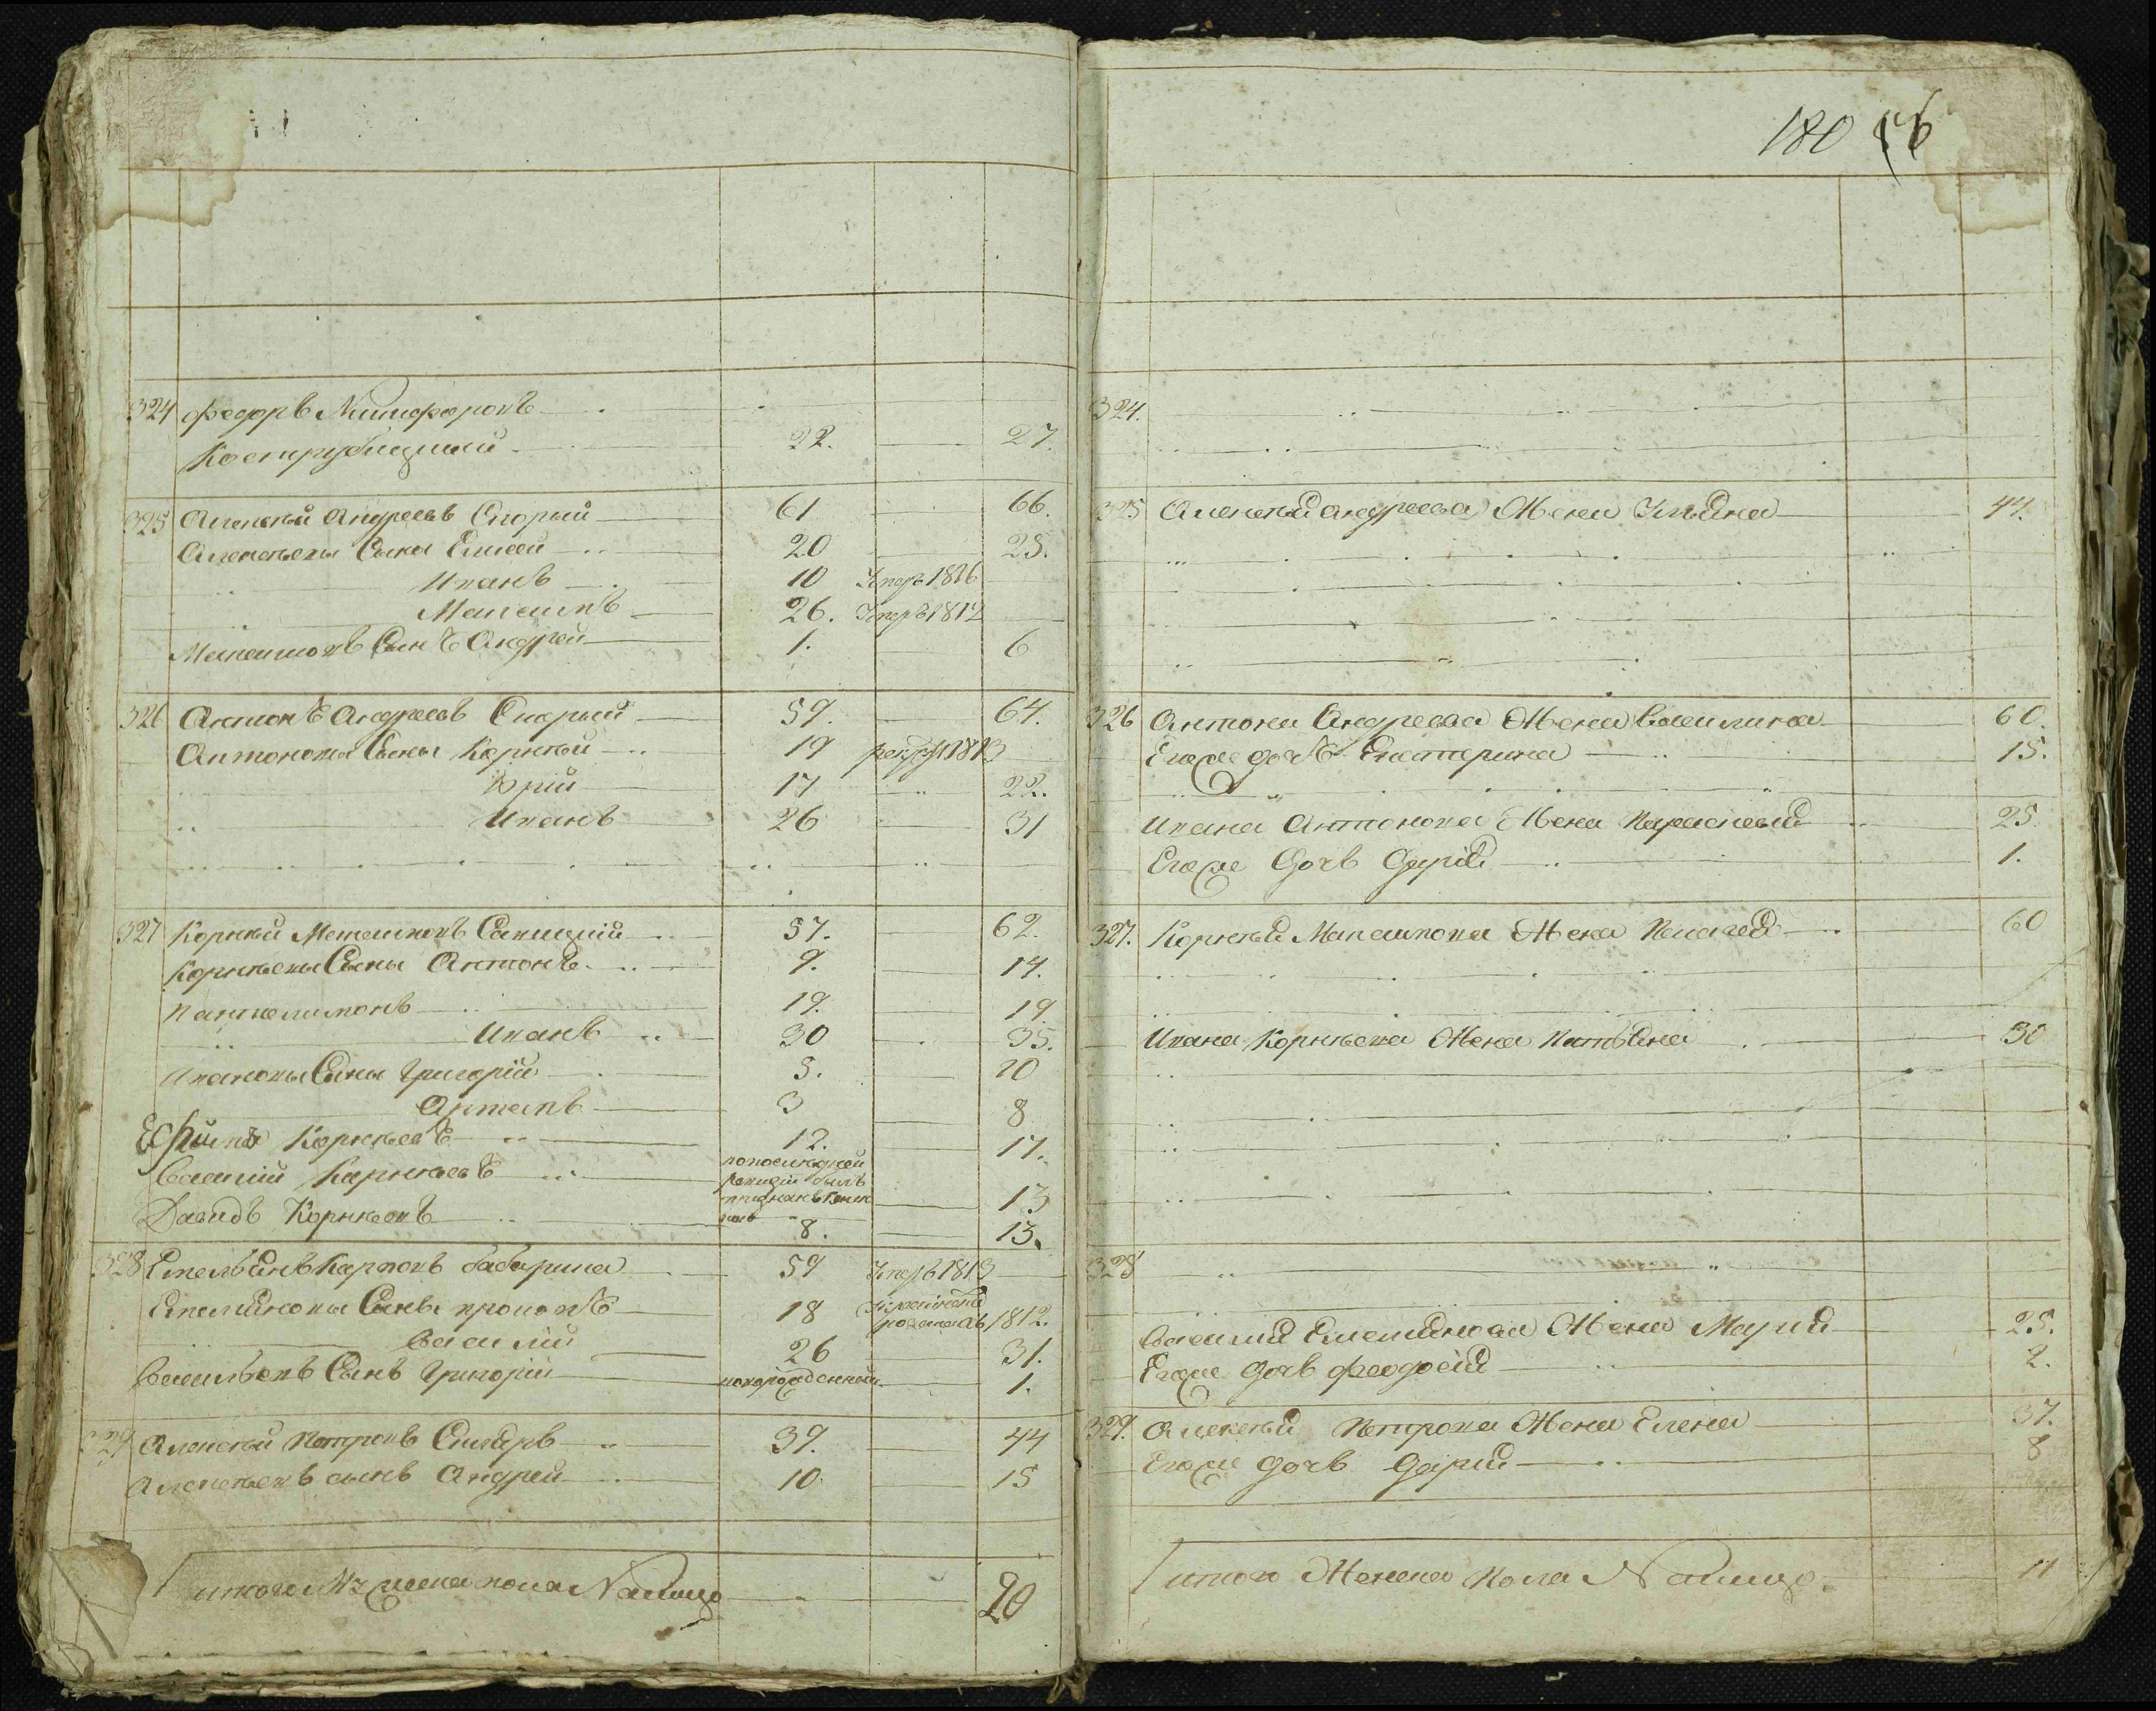 180
324 Федоръ Никифоровъ
Кострубицкий 22. 27.
325 Алексѣй Андреевъ Скорый 61 66.
Алексѣевы Сыны Елисей 20 25.
Иванъ 10 Умеръ 1816
Максимъ 26. Умеръ 1812
Максимовъ Сынъ Андрей 1. 6
326 Антонъ Андреевъ Скорый 59. 64.
Антоновы Сыны Корнѣй 19 рекру 1813
Юрій 17 22.
Иванъ 26 31
327 Корнѣй Максимовъ Савицкій 57. 62.
Корнѣевы Сыны Антонъ 9. 14.
Пантелимонъ 19
Иванъ 30 35.
Ивановы Сыны Григорій 5. 10
Артемъ 3 8
Ефимъ Корнѣевъ 12. 17.
Василій Корнѣевъ попослѣдней ревизіи былъ 13
Давидъ Корнѣевъ 8. 13.
328 Емельянъ Карповъ 59 Умеръ 1813
Емельяновы Сыны 18 1812.
Василій 26 31.
Васильевъ Сынъ Григорій новорожденный 1.
329 Алексѣй Петровъ 39. 44
Алексѣевъ сынъ Андрей 10 15
Итого Мужеска пола Налицо 20
324.
325 Алексѣя Андреева Жена Ульяна 44.
326 Антона Андреева Жена Василиса 60.
Егоже дочь Екатерина 15.
Ивана Антонова Жена Параскевія 25.
Егоже Дочь Дарія 1.
327. Корнѣя Максимова Жена Пелагея 60
Ивана Корнѣева Жена Татьяна 30
328
Василія Емельянова Жена Марія 25.
Егоже Дочь Феодосія 2.
329. Алексѣя Петрова Жена Елена 37.
Егоже Дочь Дарія 8
Итого Женска Пола Налицо 11